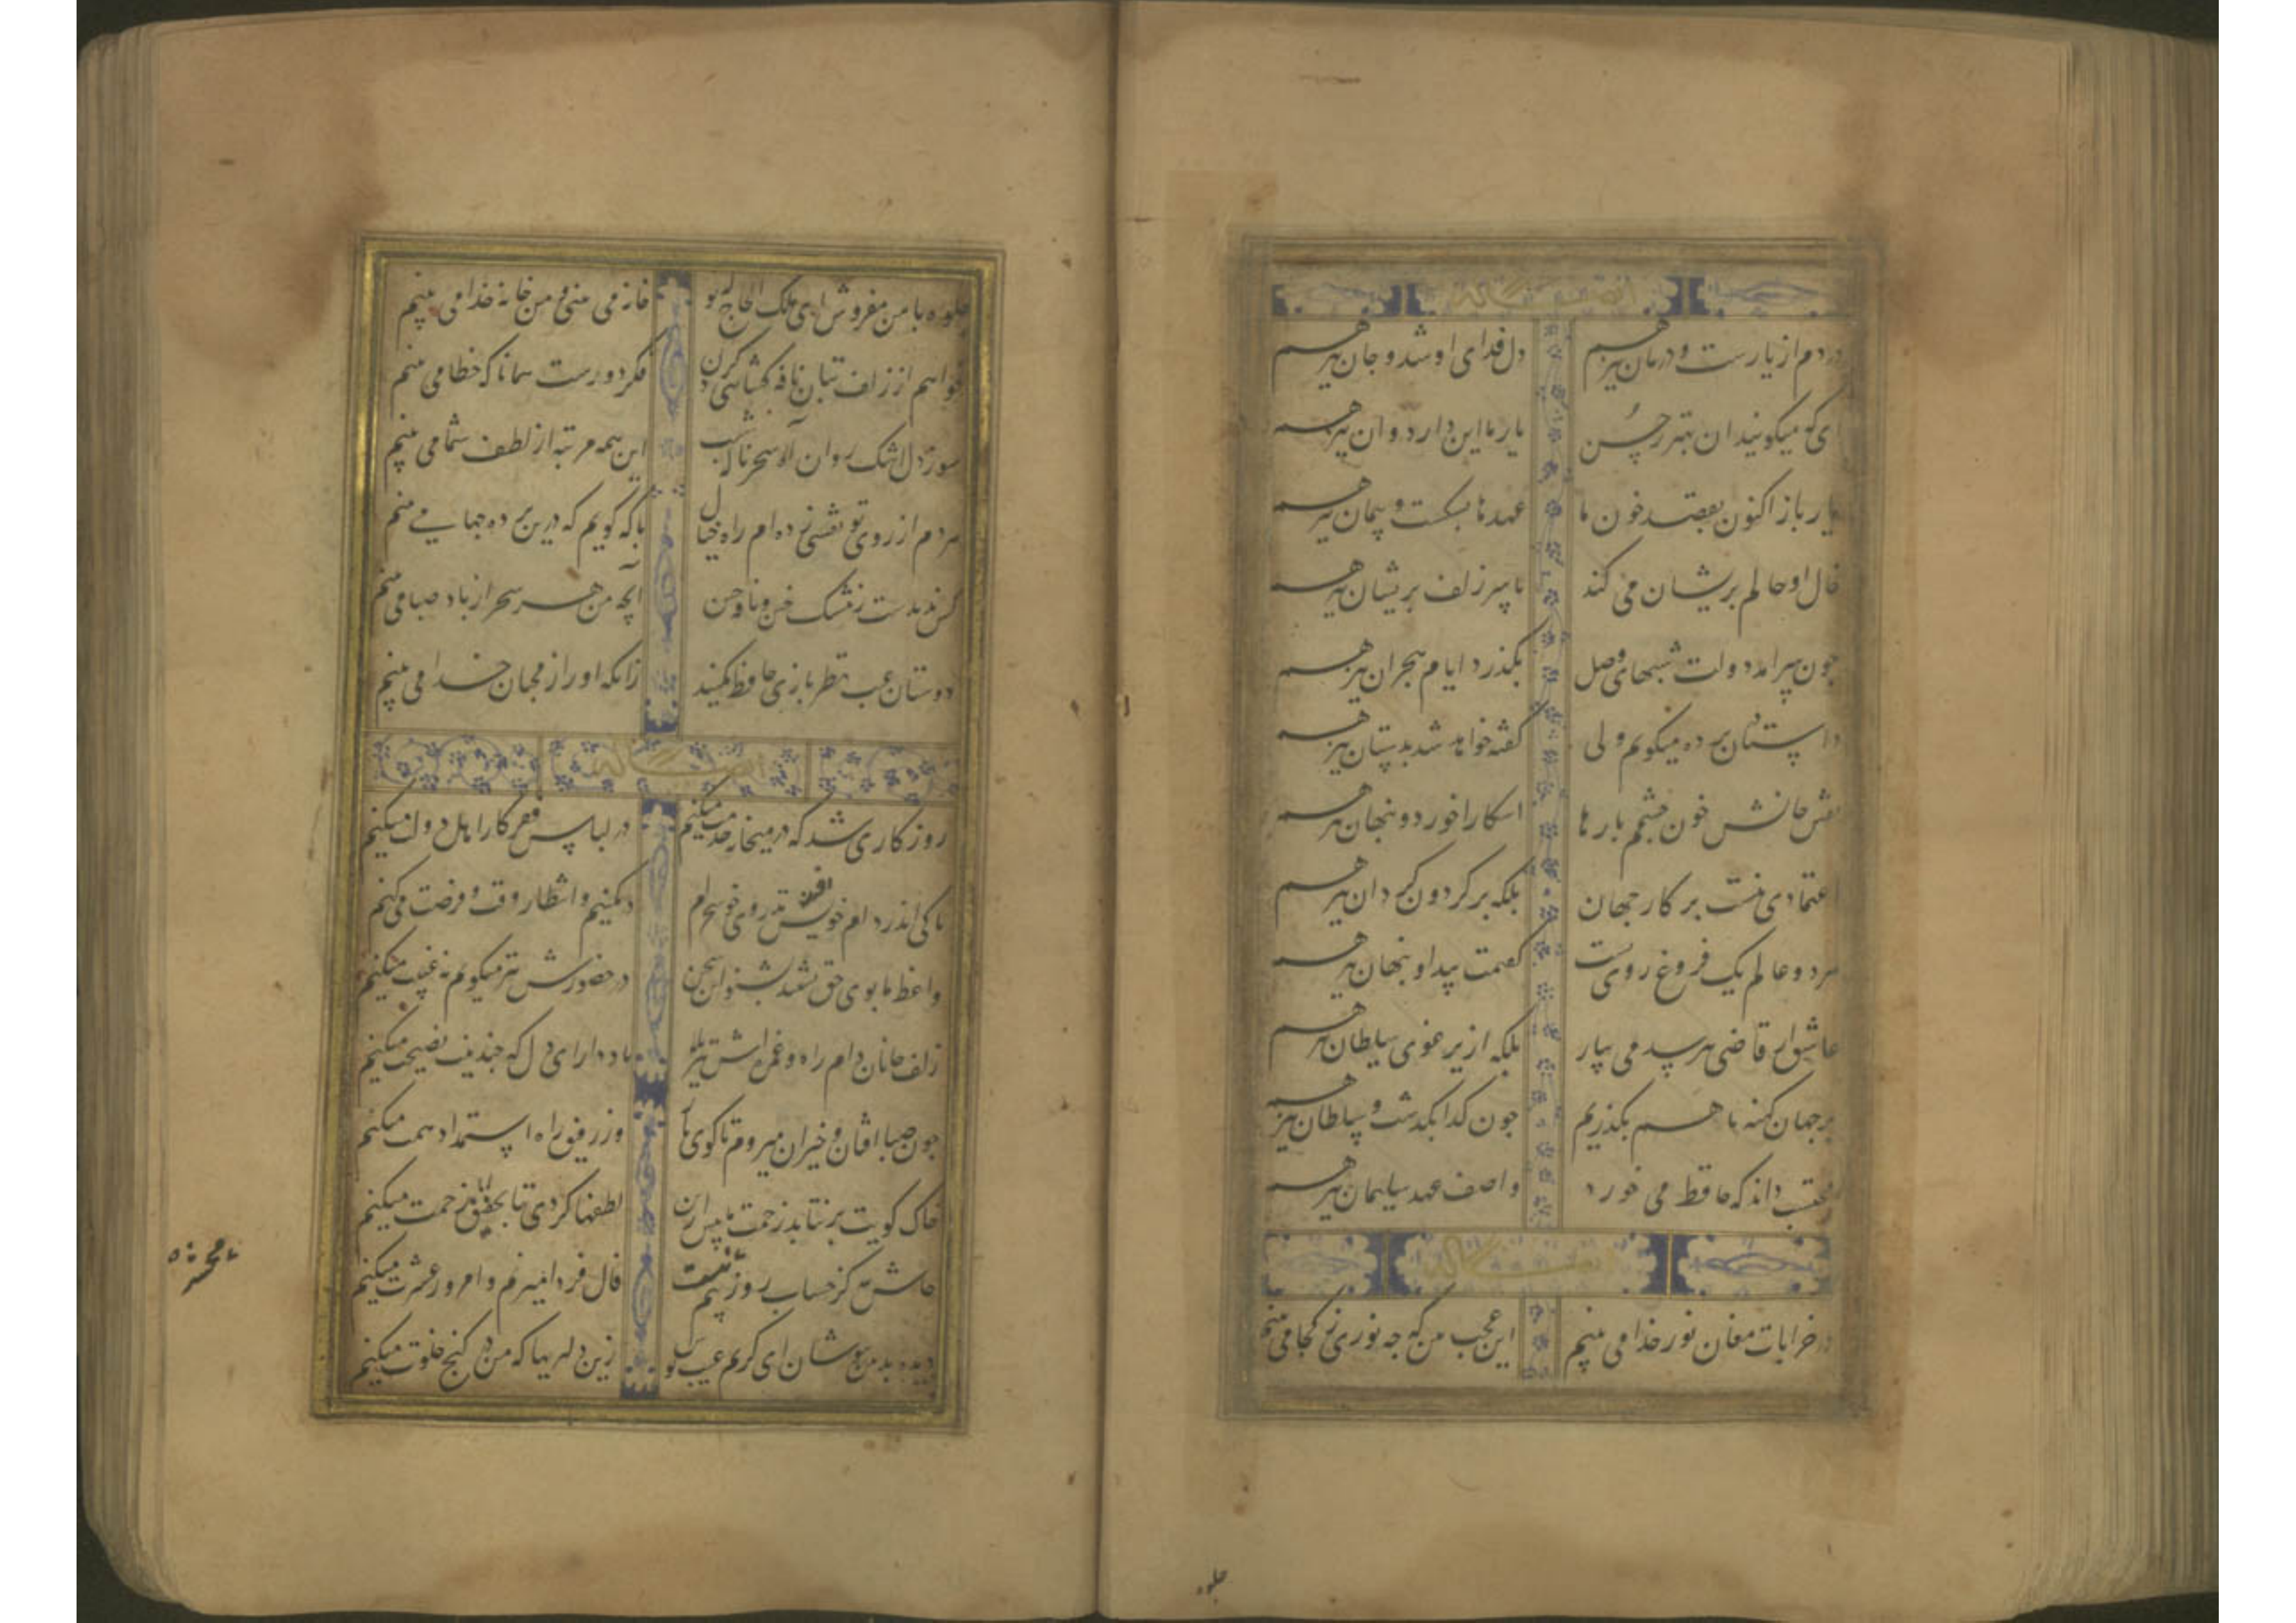 ایضاً له
دردم از یارست و درمان نیز هم دل فدای او شد و جان نیز هم
ای که میگویند آن بهتر ز حسن یار ما این دارد و آن نیز هم
یار باز اکنون بقصد خون ما عهد ما بشکست و پیمان نیز هم
خال او حالم پریشان می کند با سر زلف پریشان نیز هم
چون سرآمد دولت شبهای وصل بگذرد ایام هجران نیز هم
داستان پرده میگویم ولی گفته خواهد شد بدستان نیز هم
نقش خالش خون چشمم بارها آشکارا خورد و پنهان نیز هم
اعتمادی نیست بر کار جهان بلکه بر گردون گردان نیز هم
هر دو عالم یک فروغ روی اوست گفتمت پیدا و پنهان نیز هم
عاشق از قاضی نترسد می بیار بلکه از یرغوی سلطان نیز هم
بر جهان کهنه ما هم بگذریم چون گدا بگذشت و سلطان نیز هم
محتسب داند که حافظ می خورد و آصف عهد سلیمان نیز هم
ایضاً له
در خرابات مغان نور خدا می بینم این عجب من که چه نوری ز کجا می بینم
جلوه
جلوه با من مفروش ای ملک الحاج که تو خانه می بینی و من خانه خدا می بینم
خواهم از زلف بتان نافه گشایی کردن فکر دورست همانا که خطا می بینم
سوز دل اشک روان آه سحر ناله شب این همه مرتبه از لطف شما می بینم
هر دم از روی تو نقشی زده ام راه خیال با که گویم که درین پرده چها می بینم
کس ندیدست ز مشک ختن و نافه چین آنچه من هر سحر از باد صبا می بینم
دوستان عیب نظر بازی حافظ مکنید زانکه او را از محبان خدا می بینم
ایضاً له
روزگاری شد که در میخانه خدمت میکنم در لباس فقر کار اهل دولت میکنم
تا کی اندر دام خویش افتد تذروی خوشخرام در کمینم و انتظار وقت و فرصت می کنم
واعظ ما بوی حق نشنید بشنو این سخن در حضورش نیز میگویم نه غیبت میکنم
زلف جانان دام راه و غمزه اش تیر بلا یاد دار ای دل که چندینت نصیحت میکنم
چون صبا افتان و خیزان میروم تا کوی یار وز رفیق راه استمداد همت میکنم
خاک کویت بر نتابد زحمت ما بیش ازین لطفها کردی بتا تخفیف زحمت میکنم
حاش لله کز حساب روز بیمم نیست فال فردا میزنم و امروز عشرت میکنم
دیده بد بین بپوشان ای کریم عیب پوش زین دلیریها که من در کنج خلوت میکنم